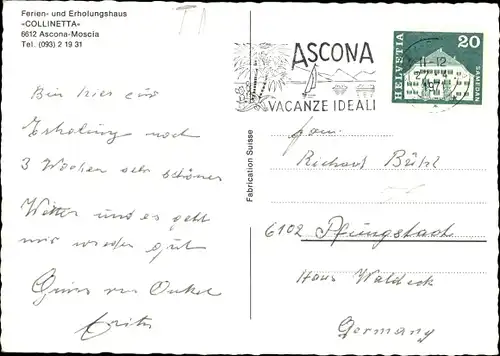 Ferien- und Erholungshaus
«COLLINETTA»
6612 Ascona-Moscia
Tel. (093) 2 19 31
Bin hier zur
Erholung noch
3 Wochen sehr schönes
Wetter und es geht
mir wieder gut
Gruss von Onkel
Fritz
Fabrication Suisse
ASCONA
VACANZE IDEALI
HELVETIA
20
SAMEDAN
11-12
Richard Brühl
6102 Pfungstadt
Haus Waldeck
Germany